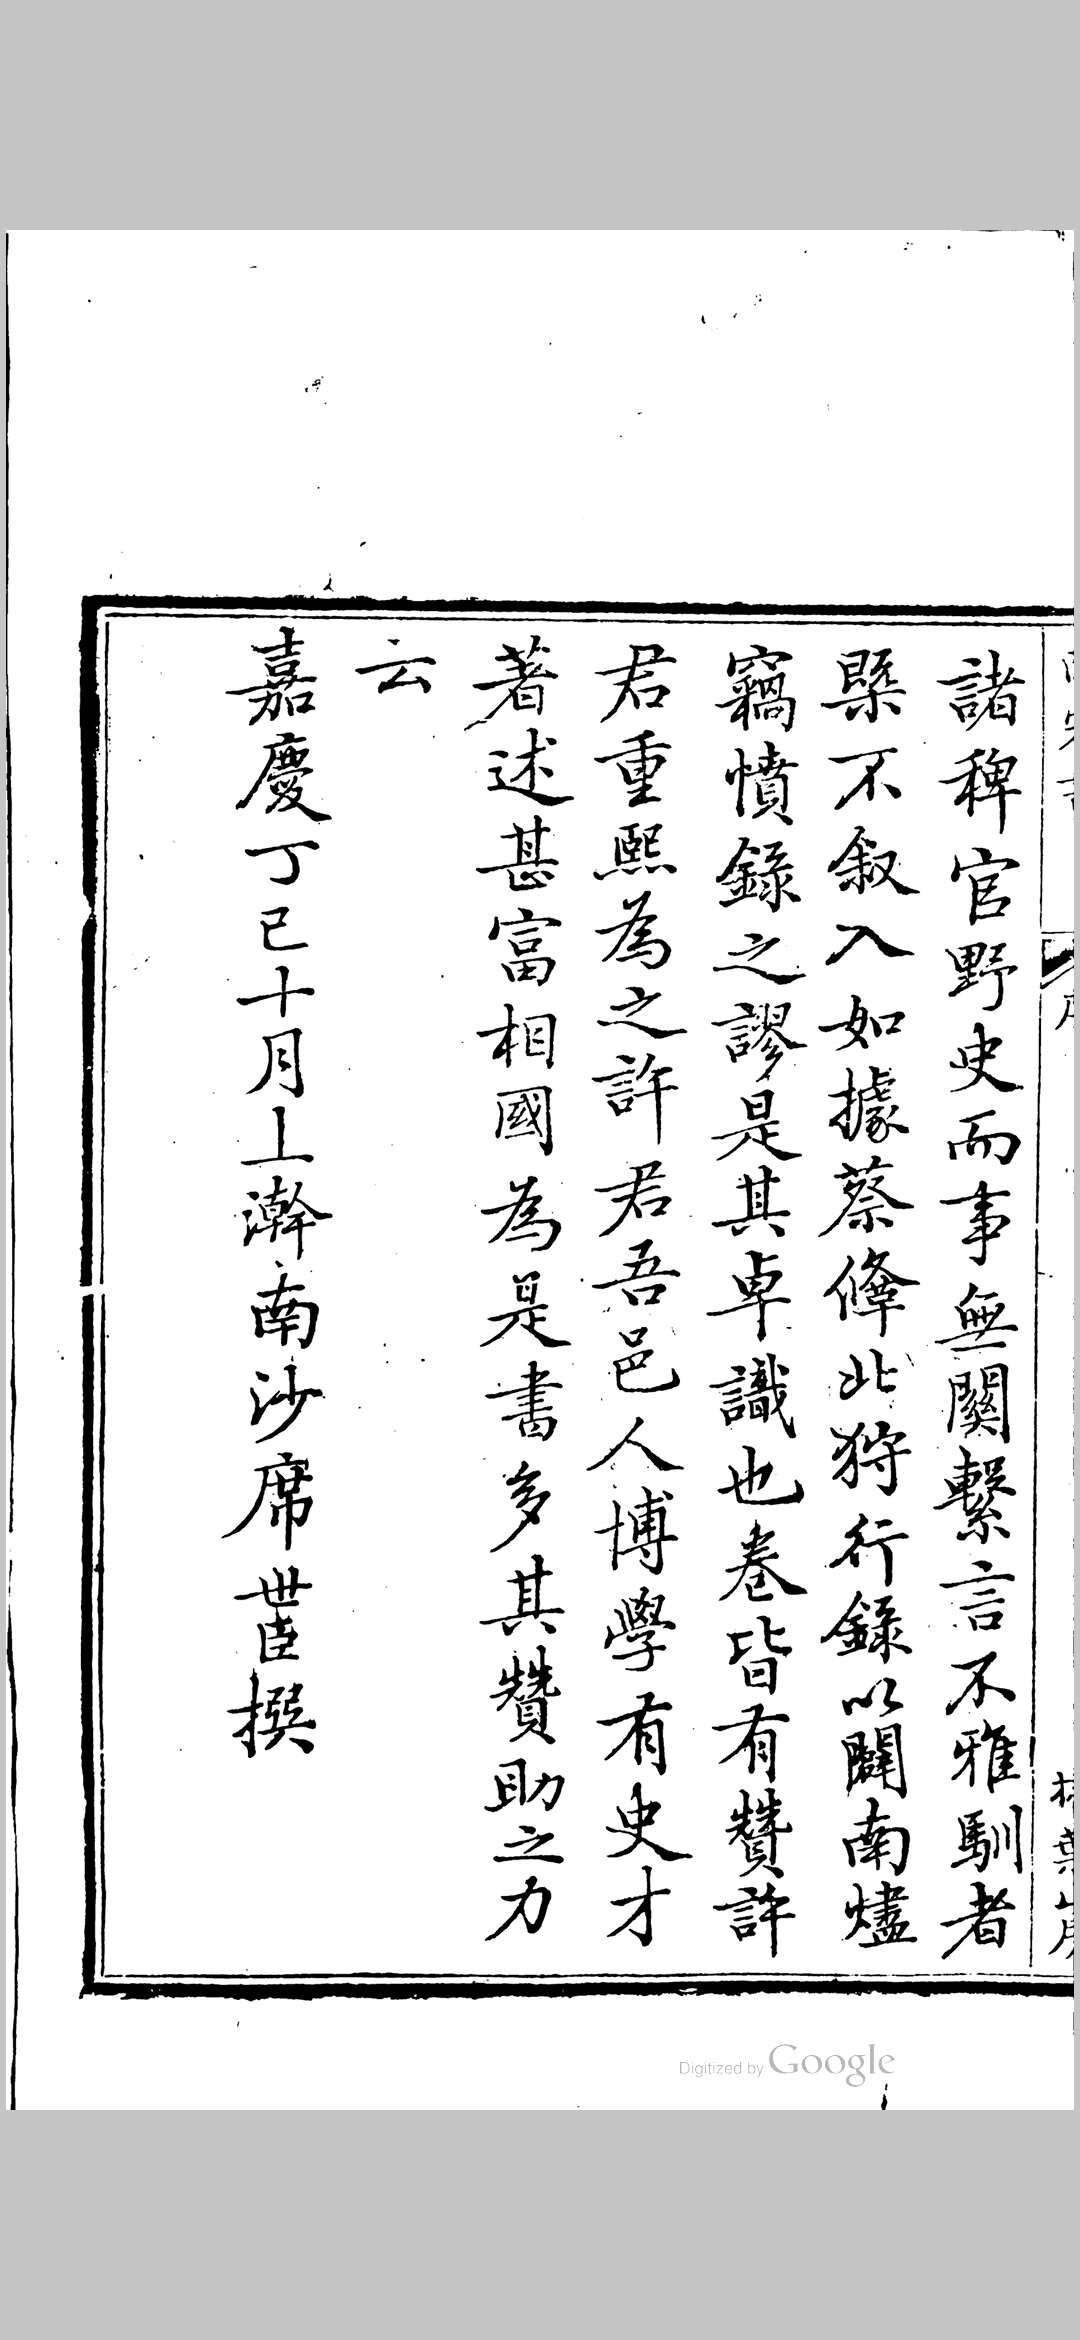 諸稗官野史而事無關繫言不雅馴者
槩不叙入如據蔡絛北狩行錄以闢南燼
竊憤錄之謬是其卓識也卷皆有贊許
君重熙為之許君吾邑人博學有史才
著述甚富相國為是書多其贊助之力
云
嘉慶丁巳十月上澣南沙席世臣撰
Digitized by Google